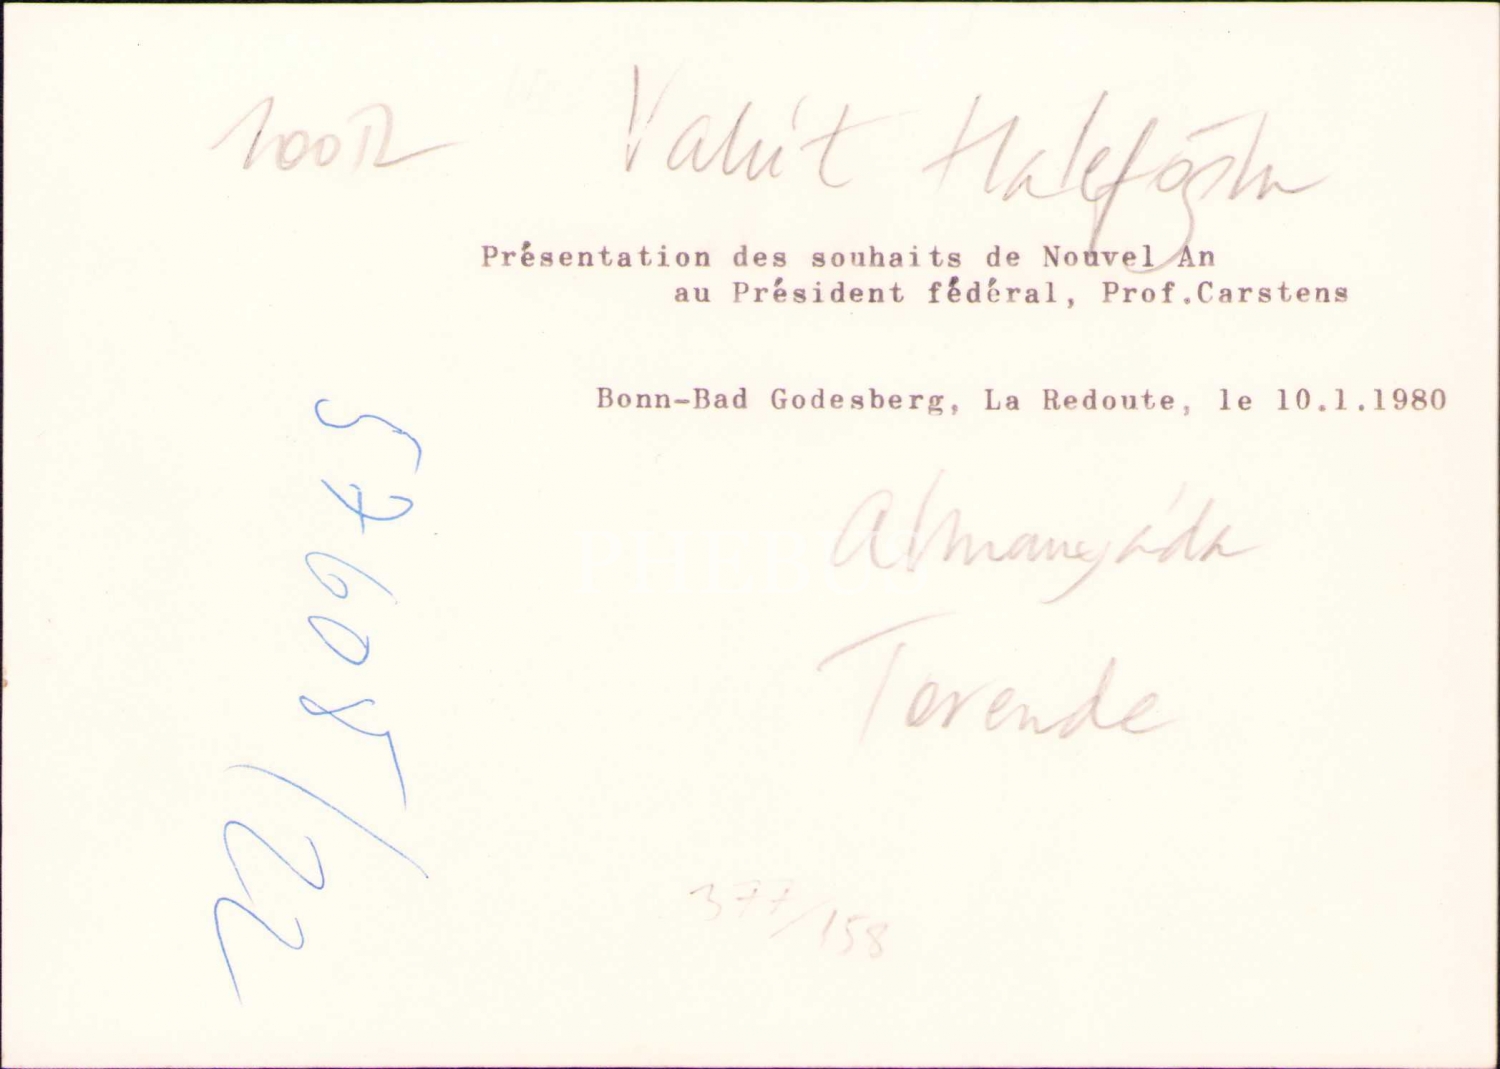 Vahit Halefoğlu
Présentation des souhaits de Nouvel An
au Président fédéral, Prof.Carstens
Bonn-Bad Godesberg, La Redoute, le 10.1.1980
Almanyáda
Törende
377/158